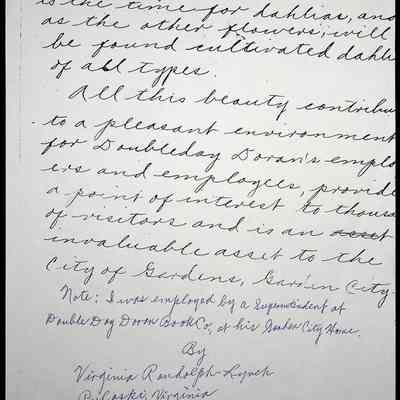 is the time for dahlias, and
as the other flowers, will
be found cultivated dahli
of all types.
All this beauty contribu
to a pleasant environment
for Doubleday Doran's emplo
ers and employees, provide
a point of interest to thousa
of visitors and is an asset
invaluable asset to the
City of Gardens, Garden City
Note: I was employed by a Superintendent at
Double Day Doran Book Co, at his Garden City Home.
By
Virginia Randolph-Lynch
Pulaski, Virginia